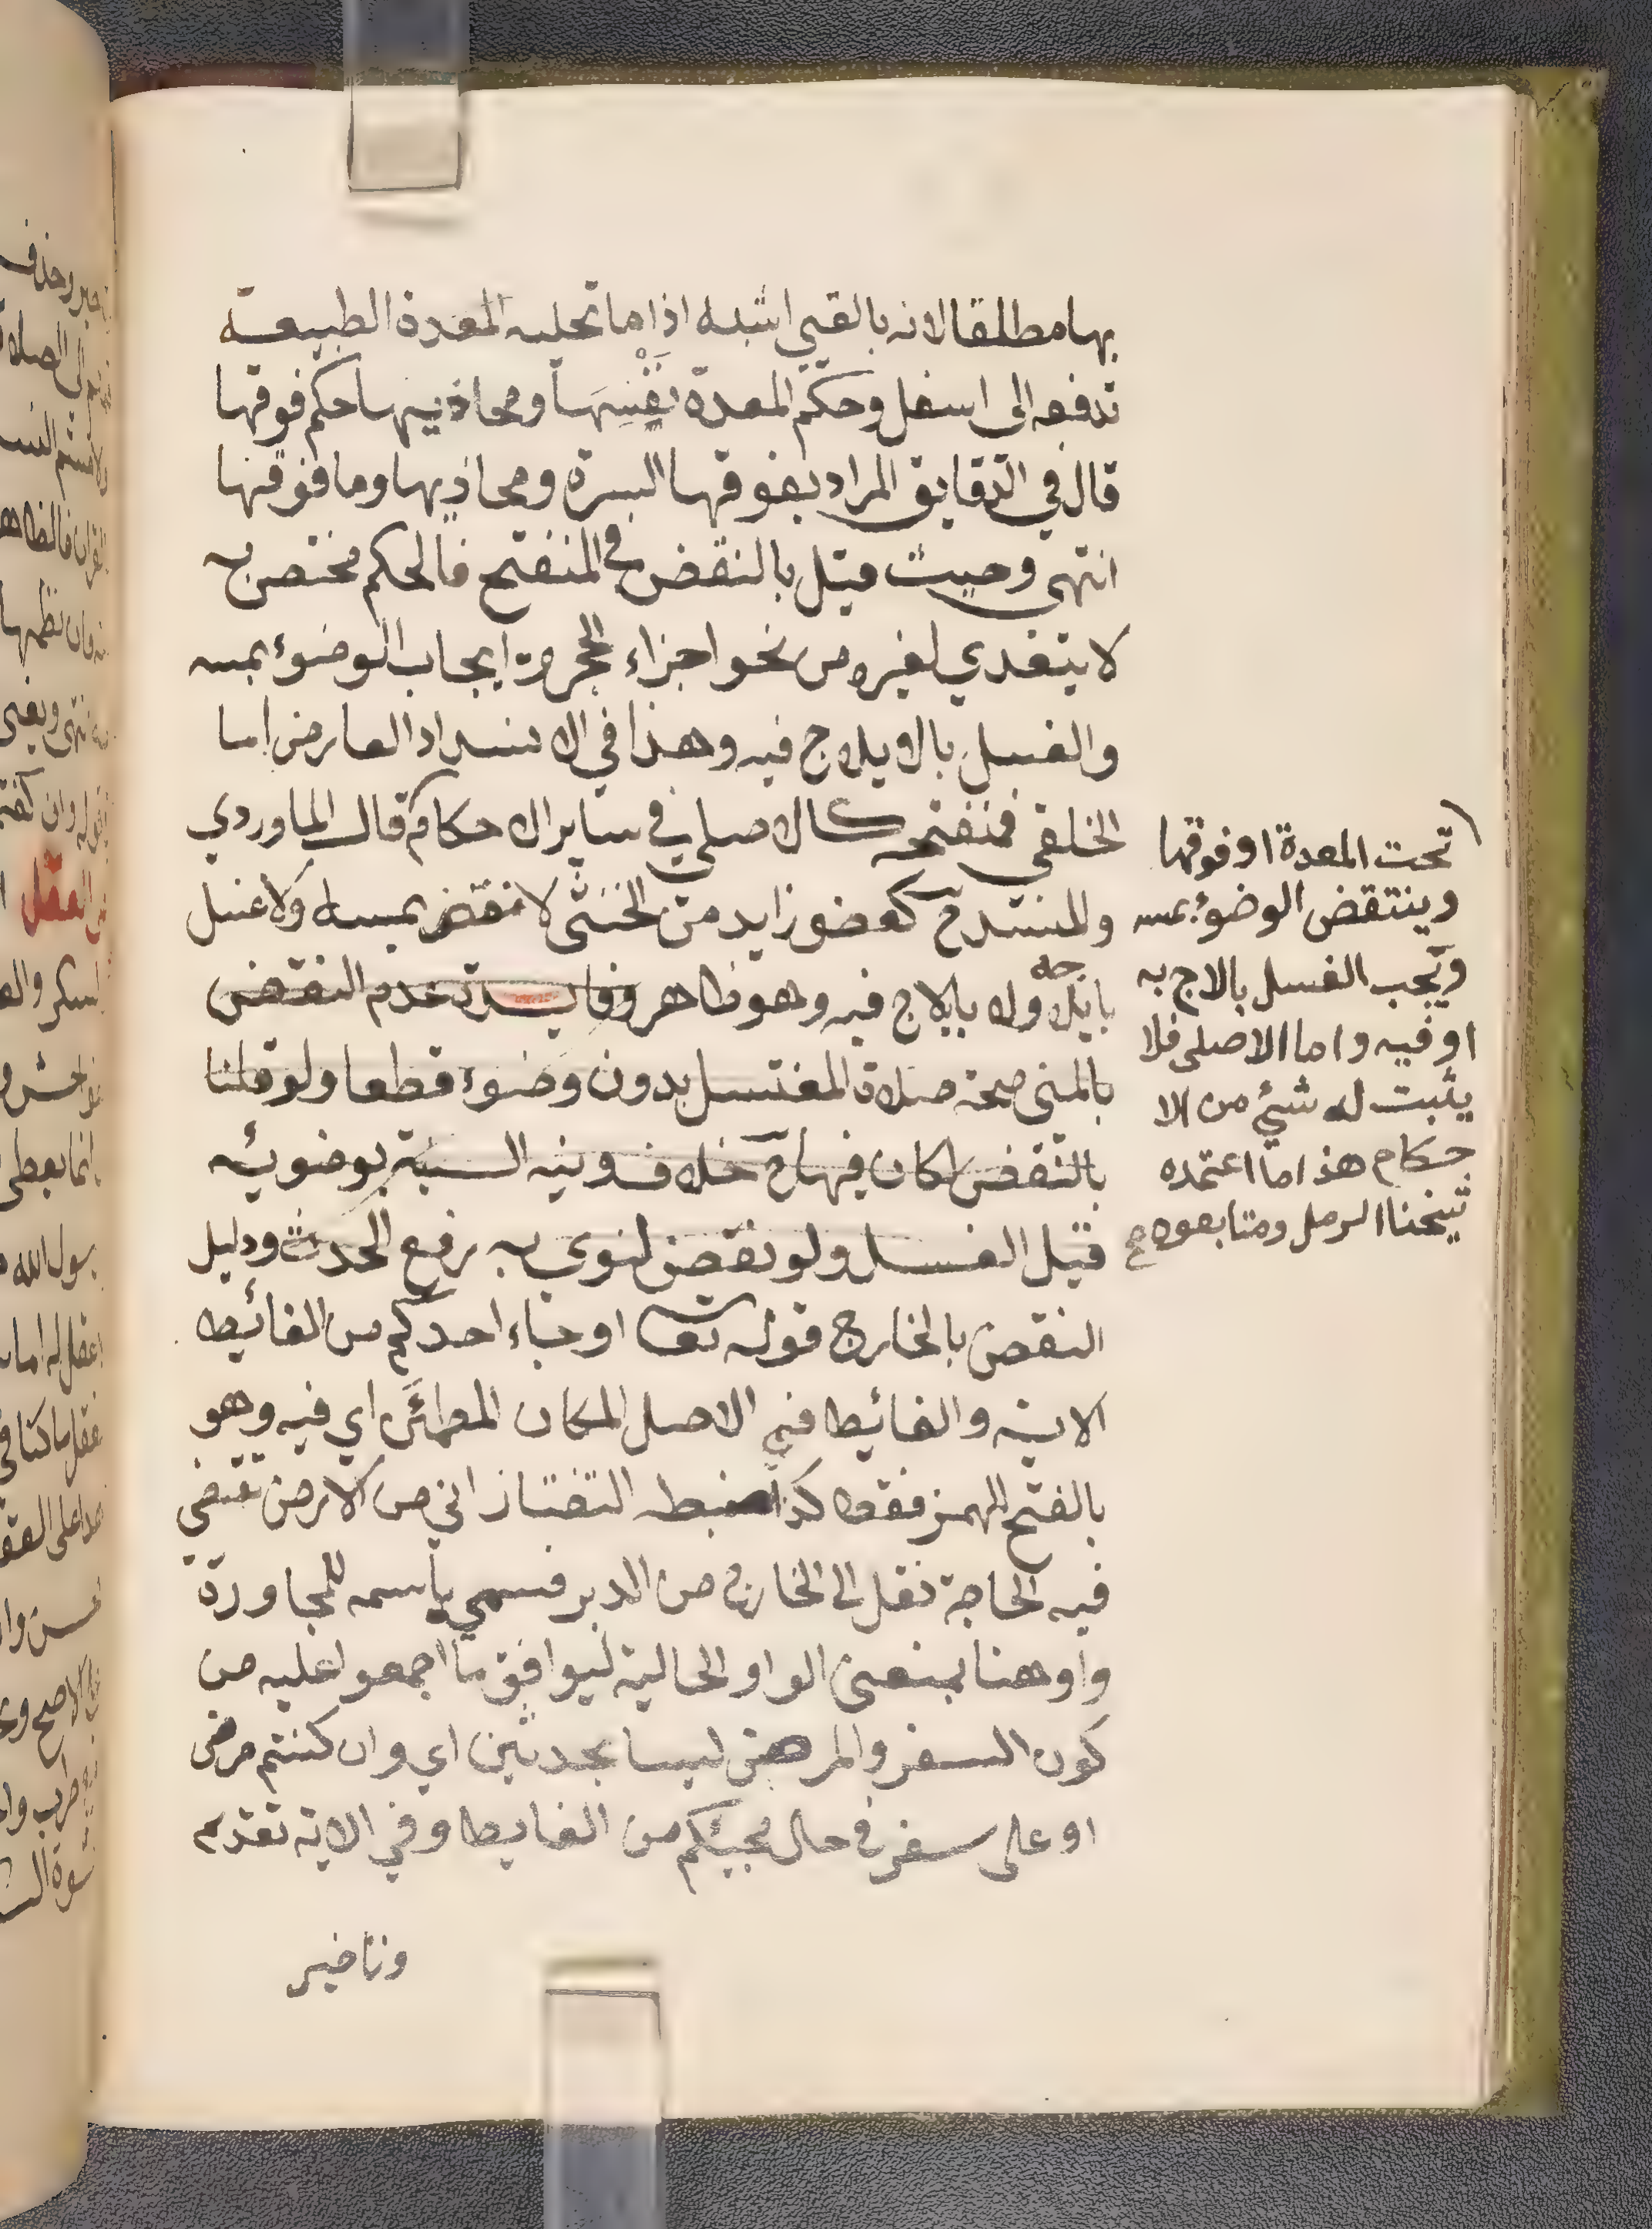 بها مطلقا لانه بالقيى اشبه اذ ما تحليه المعدة الطبيعة
تدفعه الى اسفل وحكم المعدة نفسها ومحاذيها حكم فوقها
قال في الدقايق المراد بفوقها السرة ومحاذيها وما فوقها
انتهى وحيث قيل بالنقض في المنفتح فالحكم مختص به
لا يتعدي لغيره من نحو اجزاء الحجر وايجاب الوضوء بمسه
والغسل بالايلاج فيه وهذا في الانسداد العارض اما
الخلقي فمنفتحه كالاصلي في ساير الاحكام قال الماوردي
والمنسد ح كعضو زايد من الخنثى لا نقض بمسه ولا غسل
بايلاجه ولا بايلاج فيه وهو ظاهر وفايدة عدم النقض
بالمنى صحة صلاة المغتسل بدون وضوء قطعا ولو قلنا
بالنقض لكان فيها ح خلاف ونية السنية بوضوئه
قبل الغسل ولو نقض لنوى به رفع الحدث ودليل
النقض بالخارج قوله تعا اوجاء احد كم من الغائيط
الاية والغائيط في الاصل المكان المطمئن اي فيه وهو
بالفتح للهمز فقط كذا ضبطه التفتازاني من الارض تقضي
فيه الحاجة نقل الى الخارج من الدبر فسمي باسمه للمجاورة
واو هنا بمعنى الواو الحالية ليوافق ما اجمعو اعليه من
كون السفر والمرض ليسا بحدثين اي وان كنتم مرضى
او على سفر في حال مجيئكم من الغايط وفي الاية تقديم
وتاخير
تحت المعدة او فوقها
وينتقض الوضوء بمسه
ويجب الغسل بالاج به
او فيه واما الاصلى فلا
يثبت له شئ من الا
حكام هذا ما اعتمده
شيخنا الرمل ومتابعوه صح